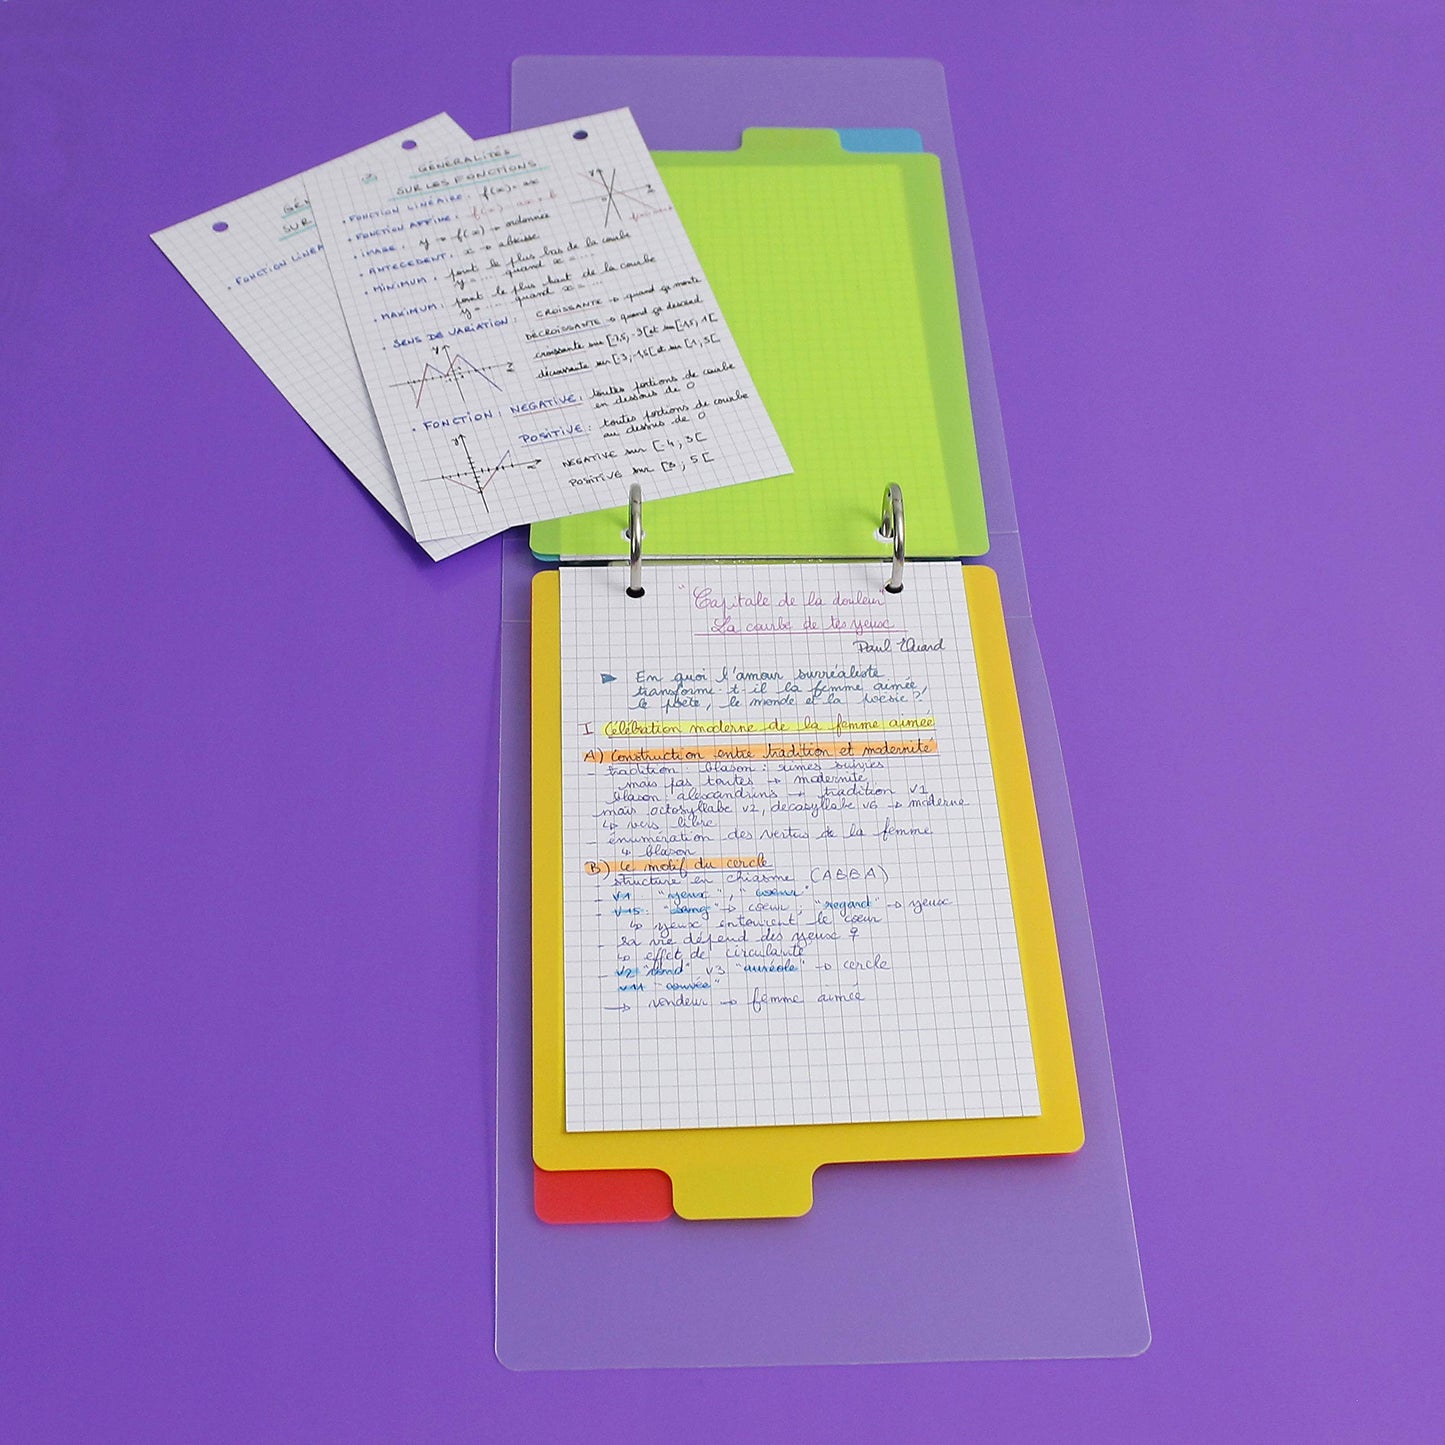 GÉN
SUR
• FONCTION LINÉAI
GÉNÉRALITÉS
SUR LES FONCTIONS
• FONCTION LINÉAIRE : f(x) = ax
• FONCTION AFFINE : f(x) = ax + b
• IMAGE : y → f(x) → ordonnée
• ANTECEDENT : x → abscisse
• MINIMUM : point le plus bas de la courbe
y = ... quand x = ...
• MAXIMUM : point le plus haut de la courbe
y = ... quand x = ...
• SENS DE VARIATION : CROISSANTE → quand ça monte
DÉCROISSANTE → quand ça descend
croissante sur [-7,5; -3[ et sur [-1,5; 1[
décroissante sur [-3; -1,5[ et sur [1; 5[
• FONCTION : NEGATIVE : toutes portions de courbe
en dessous de 0
POSITIVE : toutes portions de courbe
au dessus de 0
NEGATIVE sur [-4 ; 3[
POSITIVE sur [3 ; 5[
"Capitale de la douleur"
La courbe de tes yeux
Paul Eluard
► En quoi l'amour surréaliste
transforme-t-il la femme aimée,
le poète, le monde et la poésie ?
I Célébration moderne de la femme aimée
A) Construction entre tradition et modernité
- tradition : blason : rimes suivies
mais pas toutes → modernité
blason alexandrins → tradition V1
mais octosyllabe V2, décasyllabe V6 → moderne
↳ vers libre
- énumération des vertus de la femme
↳ blason
B) Le motif du cercle
- structure en chiasme (ABBA)
- V1 "yeux", "coeur"
- V15 : "sang" → coeur ; "regard" → yeux
↳ yeux entourent le coeur
- sa vie dépend des yeux ♀
↳ effet de circularité
- V2 "rond" V3 "auréole" → cercle
V11 "couvée"
→ rondeur → femme aimée